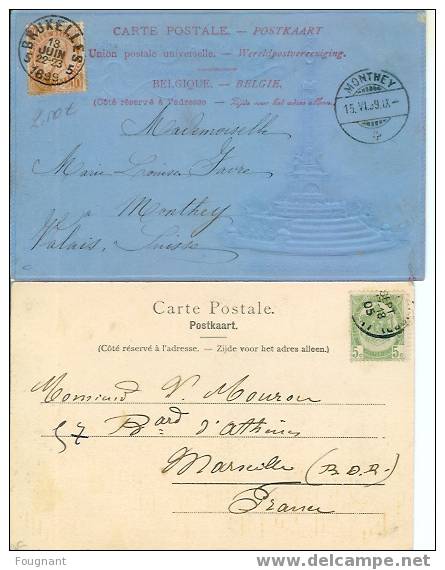 CARTE POSTALE. - POSTKAART
Union postale universelle. - Wereldpostvereeniging.
BELGIQUE. - BELGIE.
(Côté réservé à l'adresse - Zijde voor het adres alleen.)
BRUXELLES 5
13
JUIN
22-23
1899
10
2,50€
MONTHEY
15.VI.99.IX-
Mademoiselle
Marie Louise Favre
Monthey
Valais. Suisse
Carte Postale.
Postkaart.
(Côté réservé à l'adresse. — Zijde voor het adres alleen.)
SEPT
05
5c 5c
Monsieur V. Mouron
57 Bard d'Athènes
Marseille (B.D.R.)
France
Fougnant
delcampe.net